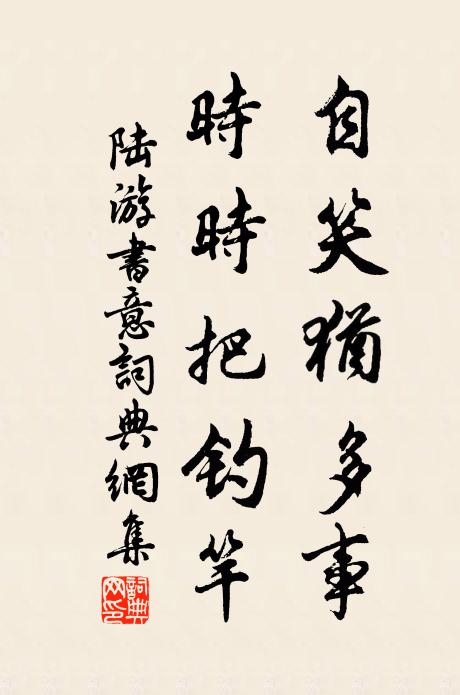 自笑猶多事
時時把釣竿
陆游書意詞典網集
詞典网印